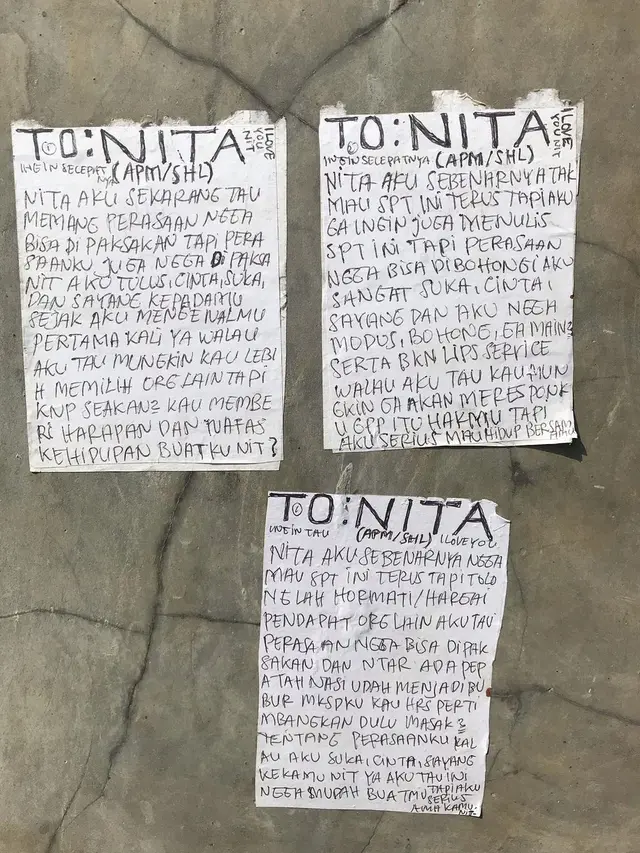 TO:NITA
I LOVE YOU NIT
INGIN SELEPAT
NYA (APM/SHL)
NITA AKU SEKARANG TAU
MEMANG PERASAAN NGGA
BISA DI PAKSAKAN TAPI PERA
SAANKU JUGA NGGA DI PAKSA
NIT AKU TULUS, CINTA, SUKA,
DAN SAYANG KEPADAMU
SEJAK AKU MENGENALMU
PERTAMA KALI YA WALAU
AKU TAU MUNGKIN KAU LEBI
H MEMILIH ORG LAIN TAPI
KNP SEAKAN2 KAU MEMBE
RI HARAPAN DAN NAFAS
KEHIDUPAN BUATKU NIT?
TO:NITA
I LOVE YOU NIT
INGIN SELEPATNYA (APM/SHL)
NITA AKU SEBENARNYA TAK
MAU SPT INI TERUS TAPI AKU
GA INGIN JUGA MENULIS
SPT INI TAPI PERASAAN
NGGA BISA DIBOHONGI AKU
SANGAT SUKA, CINTA,
SAYANG DAN AKU NGGA
MODUS, BOHONG, GA MAIN2
SERTA BKN LIPS SERVICE
WALAU AKU TAU KAU MUN
GKIN GA AKAN MERESPONK
U GPP ITU HAKMU TAPI
AKU SERIUS MAU HIDUP BERSAMA
TO:NITA
INGIN TAU (APM/SHL) I LOVE YOU
NITA AKU SEBENARNYA NGGA
MAU SPT INI TERUS TAPI TOLO
NG LAH HORMATI/HARGAI
PENDAPAT ORG LAIN AKU TAU
PERASAAN NGGA BISA DIPAK
SAKAN DAN NTAR ADA PEP
ATAH NASI UDAH MENJADI BU
BUR MKSDKU KAU HRS PERTI
MBANGKAN DULU MASAK2
TENTANG PERASAANKU KAL
AU AKU SUKA, CINTA, SAYANG
KEKAMU NIT YA AKU TAU INI
NGGA MUDAH BUATMU TAPI AKU
SERIUS
AMA KAMU
NIT